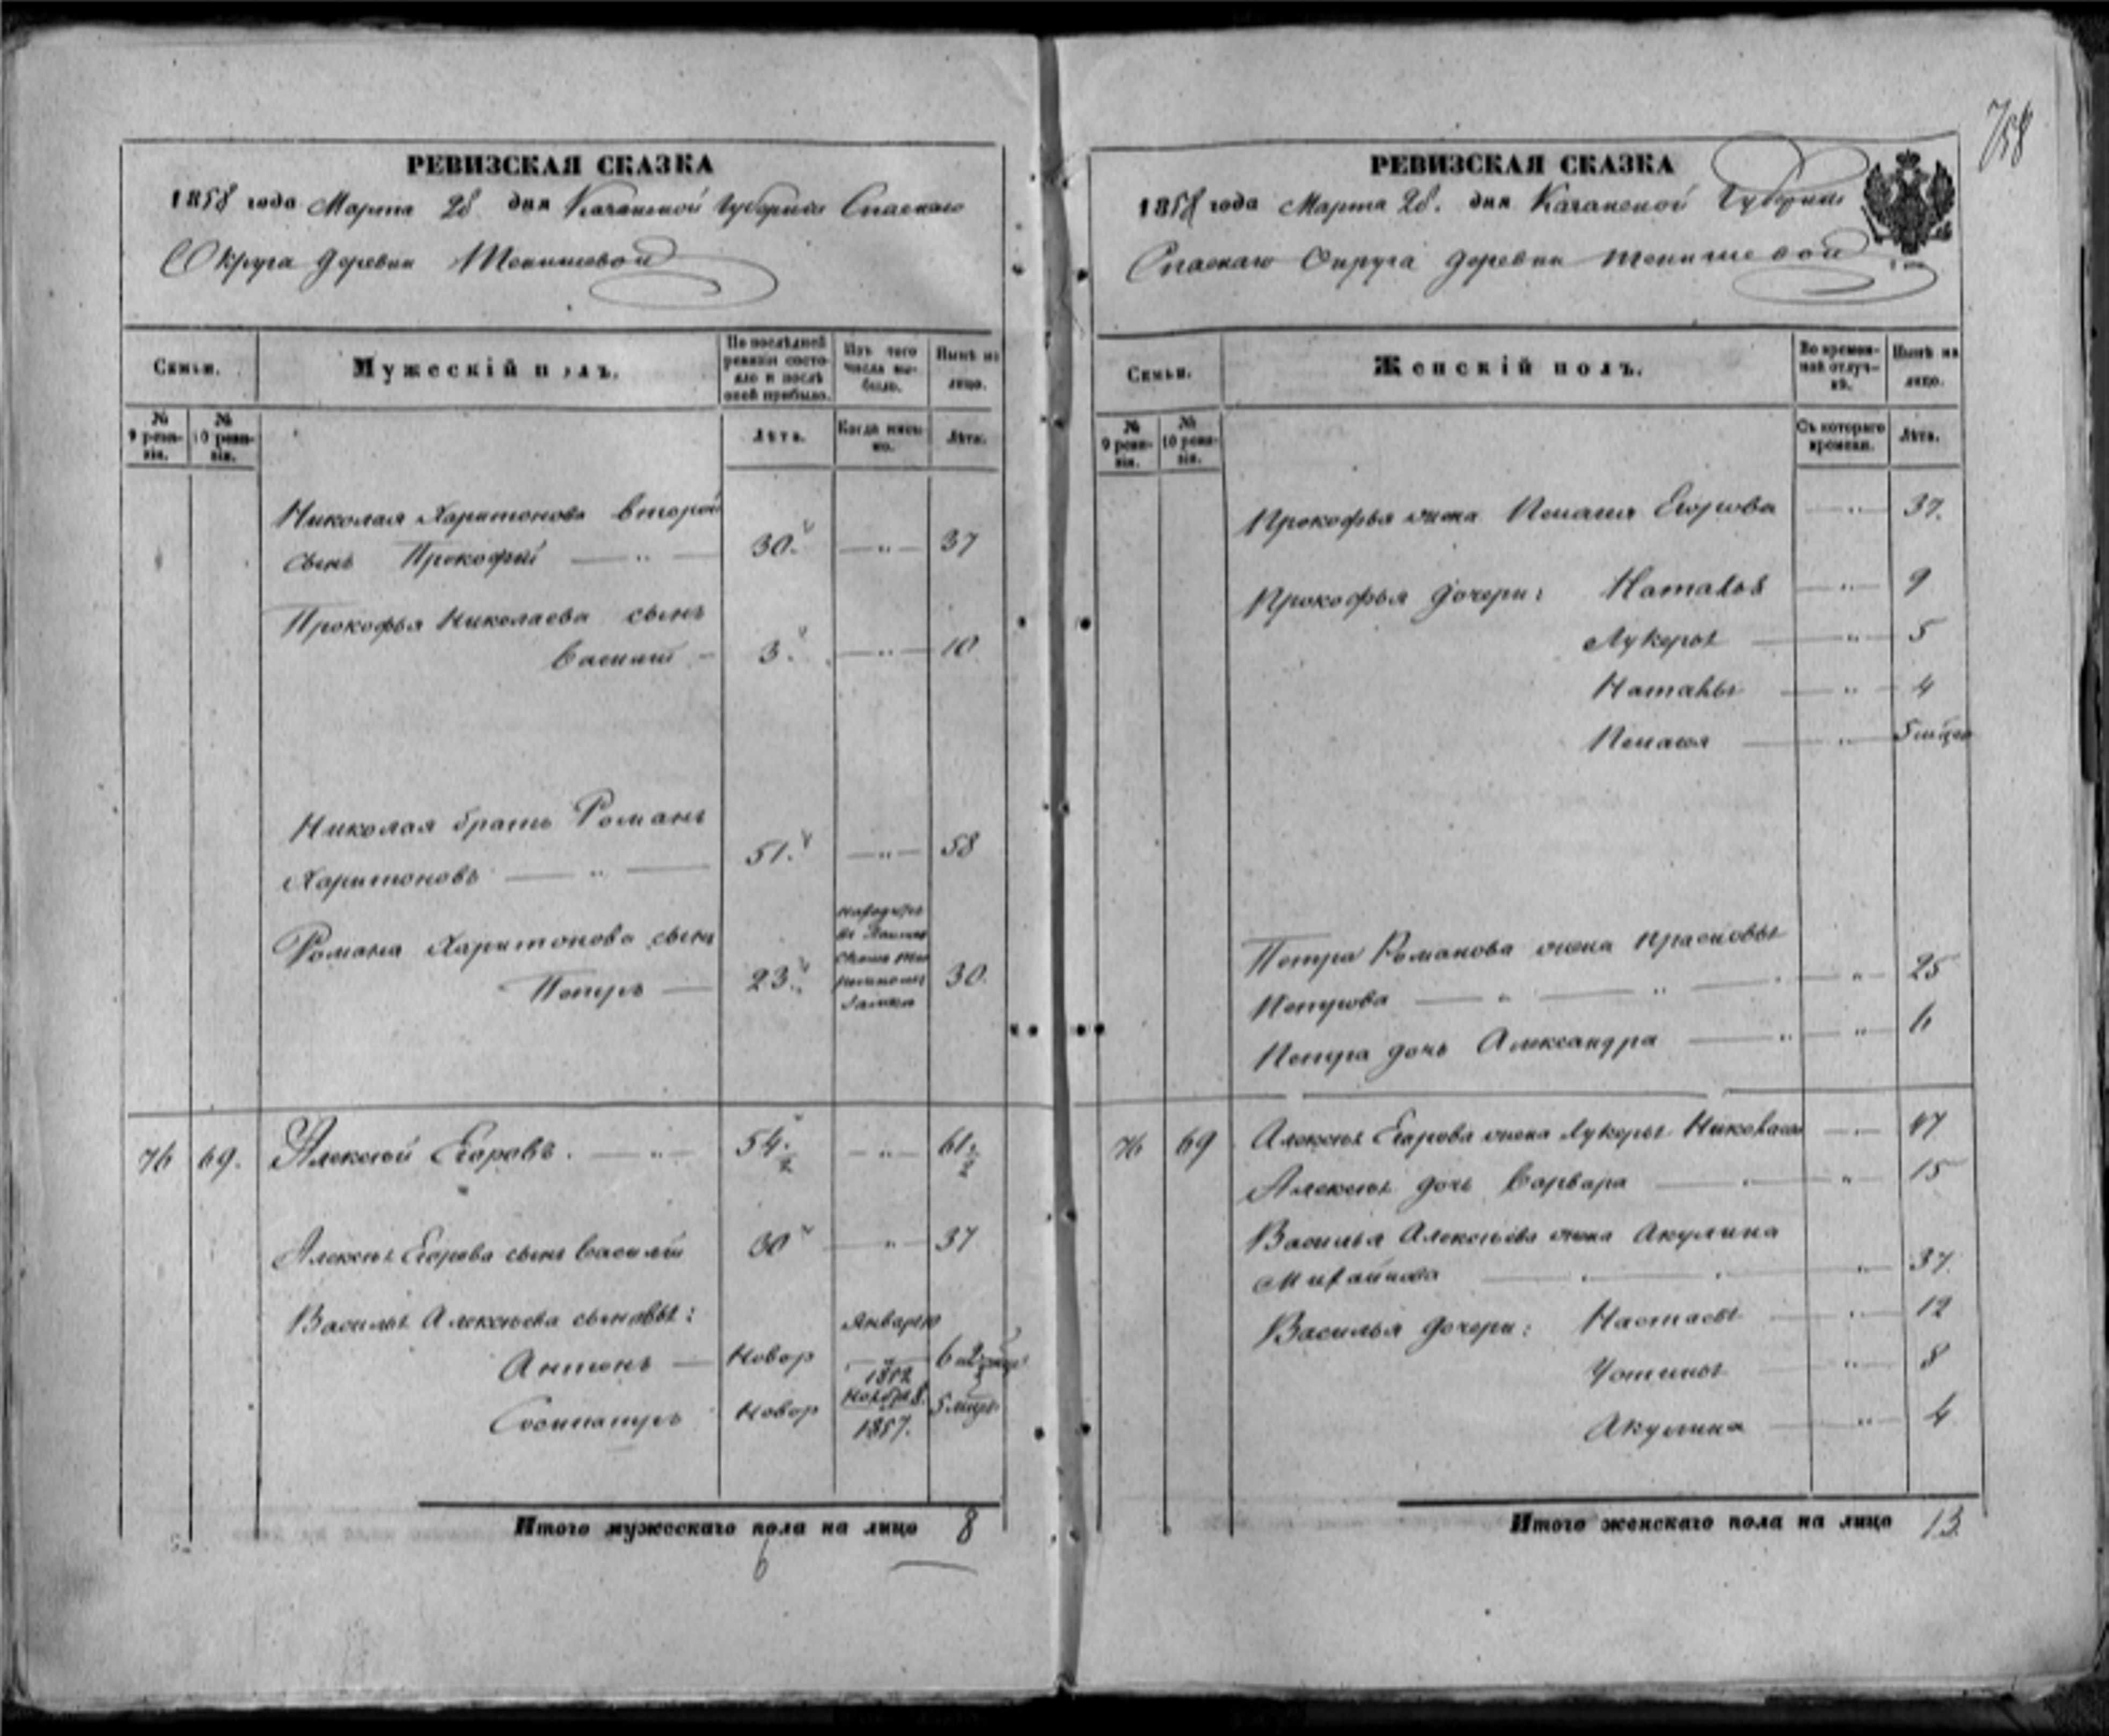 758
РЕВИЗСКАЯ СКАЗКА
1858 года Марта 28 дня Казанской Губернии Спаскаго
Округа деревни
Семьи.
Мужескій полъ.
По послѣдней ревизіи состояло и послѣ оной прибыло.
Изъ того числа выбыло.
Нынѣ на лицо.
№ 9 ревизіи.
№ 10 ревизіи.
Лѣта.
Когда именно.
Лѣта.
Николая Харитонова второй
сынъ Прокофий — " — 30. — " — 37
Прокофья Николаева сынъ
Василий — 3. — " — 10
Николая братъ Романъ
Харитоновъ — " — 51. — " — 58
Романа Харитонова сынъ
Петръ — 23. 30.
76 69. Алексей Егоровъ. — " — 54. 2 — " — 61. 2
Алексея Егорова сынъ Василий 30 — " — 37
Василья Алексеева сыновья:
Антонъ — Новор Января 1852 6
Новор Ноября 1857. 5 мцовъ
Итого мужескаго пола на лицо 8
6
РЕВИЗСКАЯ СКАЗКА
1858 года Марта 28. дня Казанской Губернии
Спаскаго Округа деревни
Семьи.
Женскій полъ.
Во временной отлучкѣ.
Нынѣ на лицо.
№ 9 ревизіи.
№ 10 ревизіи.
Съ котораго времени.
Лѣта.
Прокофья жена Пелагия Егорова — " — 37.
Прокофья дочери: Наталья — " — 9
Лукерья — " — 5
Наталья — " — 4
Пелагея — " — 5 мцовъ
Петра Романова жена Прасковья
Петрова — " — " — 25
Петра дочь Александра — " — 6
76 69 Алексея Егорова жена Лукерья Николаева — " — 47
Алексея дочь Варвара — " — 15
Василья Алексеева жена Акулина
— " — 37.
Василья дочери: Настасья — " — 12
— " — 8
Акулина — " — 4
Итого женскаго пола на лицо 13.